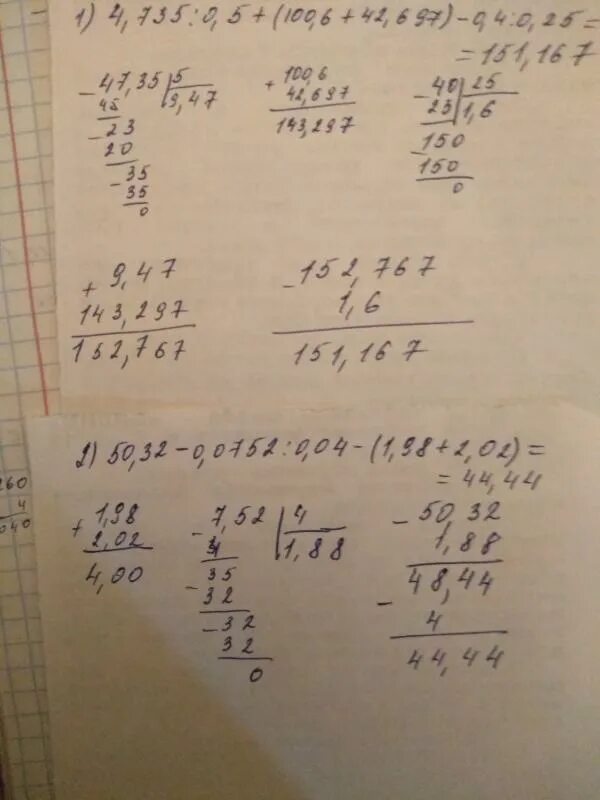 1) 4,735:0,5+(100,6+42,697)-0,4:0,25=
=151,167
-47,35 |5
45 9,47
-23
20
-35
35
0
+100,6
42,697
143,297
-40 |25
25 1,6
-150
150
0
+9,47
143,297
152,767
-152,767
1,6
151,167
2) 50,32-0,0752:0,04-(1,98+2,02)=
=44,44
+1,98
2,02
4,00
-7,52 |4
4 1,88
-35
32
-32
32
0
-50,32
1,88
48,44
-
4
44,44
260
4
040